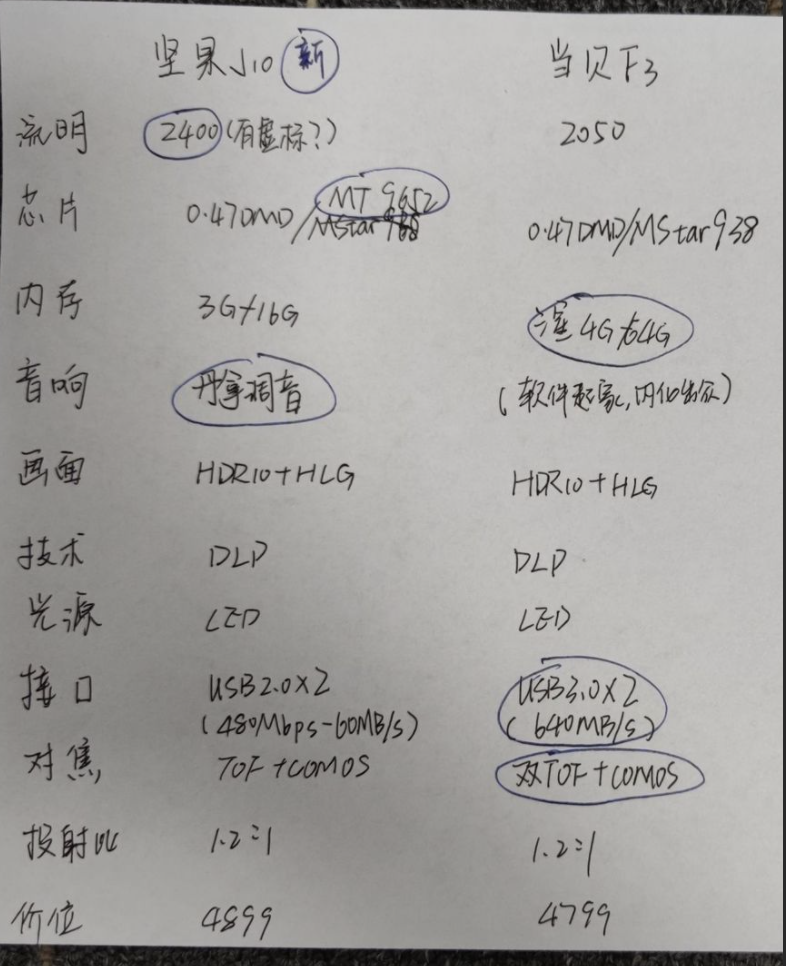 坚果J10 新 当贝F3
流明 2400(有虚标?) 2050
芯片 0.47DMD/MT 9652 0.47DMD/MStar938
MStar
内存 3G+16G 4G+64G
音响 丹拿调音 (软件起家,内化出众)
画面 HDR10+HLG HDR10+HLG
技术 DLP DLP
光源 LED LED
接口 USB2.0×2 USB3.0×2
(480Mbps-60MB/s) (640MB/s)
对焦 TOF+COMOS 双TOF+COMOS
投射比 1.2:1 1.2:1
价位 4899 4799